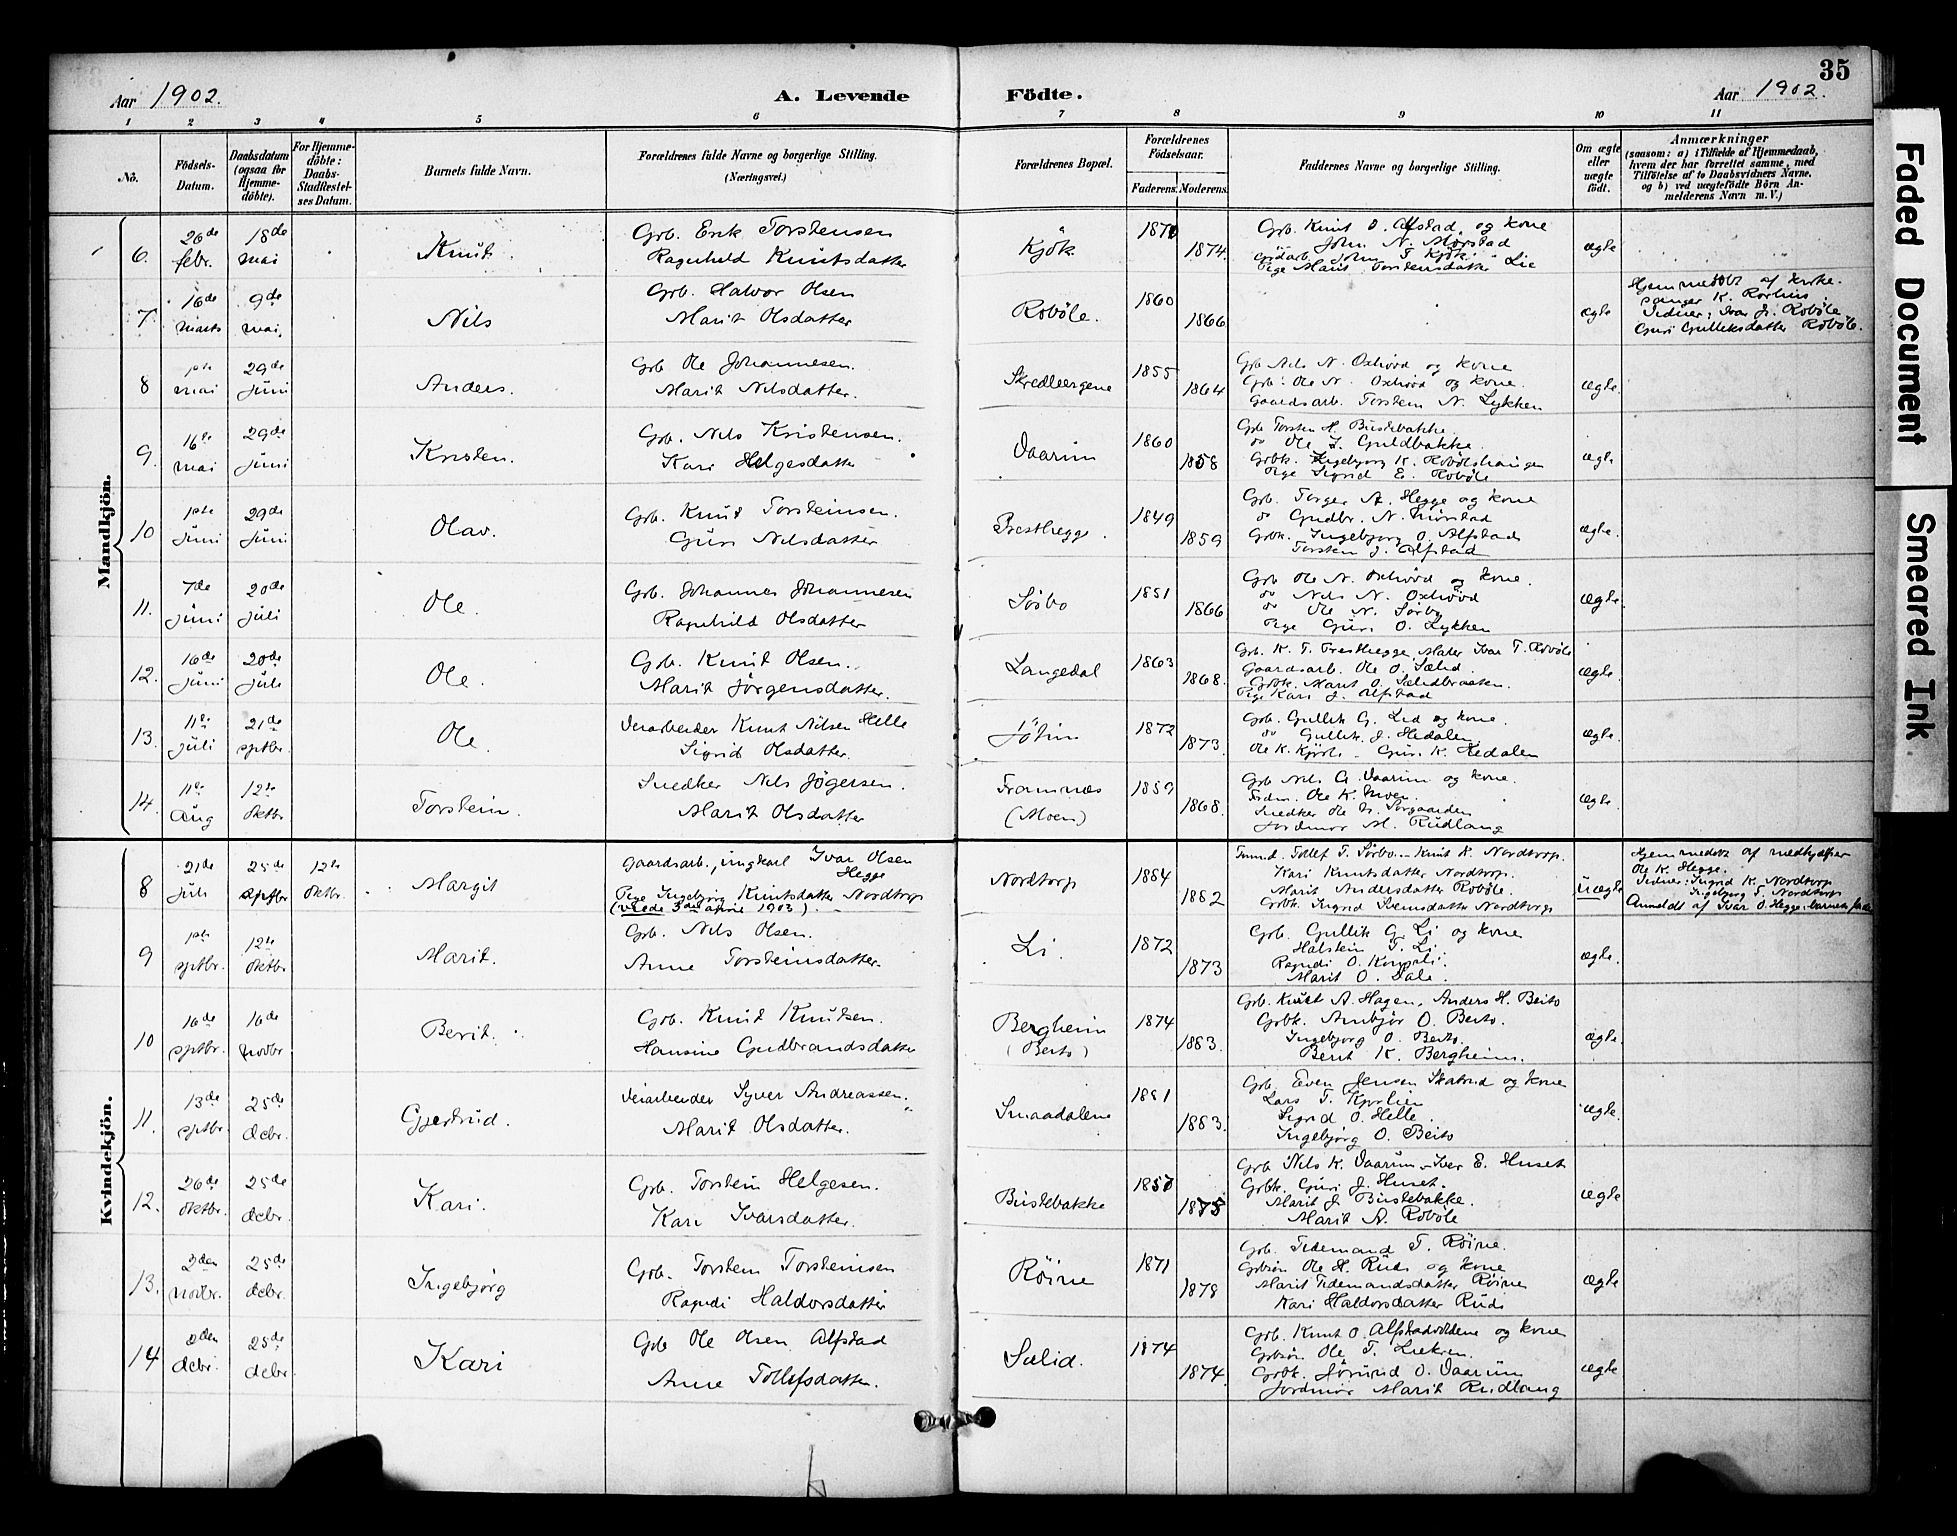 35
Aar 1902.
A. Levende Födte.
Aar 1902.
1 2 3 4 5 6 7 8 9 10 11
No.
Födsels-Datum.
Daabsdatum (ogsaa for Hjemme-döbte).
For Hjemme-döbte: Daabs-Stadfæstel-ses Datum.
Barnets fulde Navn.
Forældrenes fulde Navne og borgerlige Stilling. (Næringsvei.)
Forældrenes Bopæl.
Forældrenes Födselsaar.
Faderens. Moderens.
Faddernes Navne og borgerlige Stilling.
Om ægte eller uægte födt.
Anmærkninger
(saasom: a) i Tilfælde af Hjemmedaab,
hvem der har forrettet samme, med
Tilföielse af to Daabsvidners Navne,
og b) ved uægtefödte Börn An-
melderens Navn m.V.)
Mandkjön.
6. 26de febr. 18de mai Knut
Grb. Erik Torstensen
Ragnhild Knutsdatter
Kjök. 1870 1874.
Grb. Knut O. Alfstad, og kone
John N. Mörstad
Gaardarb. John T. Kjök
Pige Marit Torstensdatter Lie
ægte
7. 16de marts 9de mai, Nils
Grb. Halvor Olsen
Marit Olsdatter
Robóle. 1860 1866
ægte
Hjemmedöbt af kirke-
sanger K. Rorhus.
Vidner: Ivar J. Robóle
Guri Gulleksdatter Robóle.
8 1ste mai 29de juni Anders.
Grb Ole Johannesen.
Marit Nilsdatter.
Skredbergene 1855 1864
Grb Nils N. Oxhövd og kone
Grb. Ole N. Oxhövd og kone.
Gaardsarb. Torstein N. Lykken
ægte.
9. 16de mai 29de juni Kristen.
Grb. Nils Kristensen.
Kari Helgesdatter
Vaarum 1860 1858
Grb Torsten H. Büstebakke.
do Ole J. Guldbakke.
Grbk. Ingebjörg K. Robölshaugen
Pige Sigrid E. Robóle
ægte
10 1ste juni 29de juni Olav.
Grb. Knut Torsteinsen.
Guri Nilsdatter
Presthegge. 1849 1859
Grb. Torger A. Hegge og kone
do Gudbr. N. Mörstad
Grbk. Ingebjorg O. Alfstad
Torsten J. Alfstad
ægte.
11. 7de juni 20de juli Ole.
Grb. Johannes Johannesen
Ragnhild Olsdatter
Sörbo 1851 1866
Grb Ole N. Oxhövd og kone.
do Nils N. Oxhövd
do Ole N. Sörby
Pige Guri O. Lykken
ægte.
12. 16de juni 20de juli Ole.
Grb. Knut Olsen.
Marit Jörgensdatter.
Langedal 1863 1868.
Grb. K. T. Presthegge, Maler Ivar T. Robóle
Gaardsarb. Ole O. Sælid.
Grbk. Marit O. Sælidbraaten.
Pige Kari J. Alfstad
ægte.
13. 11te juli 21de sptbr. Ole.
Veiarbeider Knut Nilsen Helle
Sigrid Olsdatter.
Jötun 1872 1873.
Grb. Gullik G. Lid og kone.
do Gullik J. Hedalen
Ole K. Kjörli – Guri K. Hedalen
ægte.
14. 11te aug 12te oktbr Torstein.
Snedker Nils Jögersen.
Marit Olsdatter
Framnæs
(Moen) 1859 1868.
Grb Nils G. Vaarum og kone.
Ole K. Moen.
Jordmor M. Rudlang
ægte.
Kvindekjön.
8 21de juli 25de sptbr 12te oktbr. Margit
Gaardsarb., ungkarl Ivar Olsen Hegge
Pige Ingebjörg Knutsdatter Nordtorp
(viede 3de april 1903).
Nordtorp 1884 1882
Tollef T. Sörbo – Knut K. Nordtorp.
Kari Knutsdatter Nordtorp.
Marit Andersdatter Robóle.
Grbk. Ingrid Nordtorp
uægte
Hjemmedöbt af medhjælper
Ole K. Hegge.
Vidner: Ingrid K. Nordtorp
Ingebjörg T. Nordtorp
Anmeldt af Ivar O. Hegge, barnets fader
9 1ste sptbr. 12te oktbr Marit.
Grb. Nils Olsen.
Anne Torsteinsdatter.
Li. 1872 1873
Grb. Gullik G. Li og kone
Halstein T. Li
Ragndi O.
Marit O. Dale.
ægte.
10 16de sptbr. 16de novbr Berit.
Grb. Knut Knutsen.
Hansine Gudbrandsdatter
Bergheim
(Beito) 1874 1883.
Grb. Knut A. Hagen, Anders H. Beito
Grbk. Anbjör O. Beito.
Ingebjorg O. Beito.
Berit K. Bergheim.
ægte.
11. 13de sptbr. 25de debr. Gjertrud.
Veiarbeider Syver Andreassen.
Marit Olsdatter.
Smaadalene 1881 1883.
Grb. Even Jensen Skatrud og kone
Lars T. Kjörlien
Sigrid O. Helle.
Ingebjörg O. Beito
ægte.
12. 26de oktbr. 25de debr. Kari.
Grb. Torstein Helgesen.
Kari Ivarsdatter.
Büstebakke 1857 1875
Grb Nils K. Vaarum – Iver E. Huset
Grbk. Guri J. Huset.
Marit J. Büstebakke.
Marit A. Robóle
ægte
13. 2den novbr. 25de debr. Ingebjörg
Grb. Torstein Torsteinsen
Ragndi Haldorsdatter
Röine 1871 1878
Grb. Tidemand T. Röine.
Grbsön Ole H. Rudi og kone
Marit Tidemandsdatter Röine
Kari Haldorsdatter Rudi
ægte
14 2den debr. 25de debr. Kari
Grb Ole Olsen Alfstad
Anne Tollefsdatter.
Sælid. 1874 1874.
Grb. Knut O. Alfstad og kone
Grbsön Ole T.
Grbk. Jörund O. Vaarum
Jordmor Marit Rudlang
ægte
Faded Document
Smeared Ink